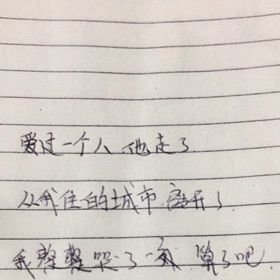 爱过一个人 他走了
从我住的城市 离开了
我整整哭了一夜 算了吧